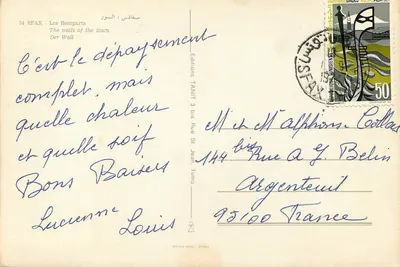 74 SFAX Les Remparts
The walls of the town
Der Wall
صفاقس - السور
C'est le dépaysement
complet, mais
quelle chaleur
et quelle soif
Bons Baisers
Lucienne
Louis
Editions TANIT 3 bis Rue St Jean Tunis
SFAX
50
M et Mme Alphons-Collas
144 bis Rue A G. Belin
Argenteuil
95100 France